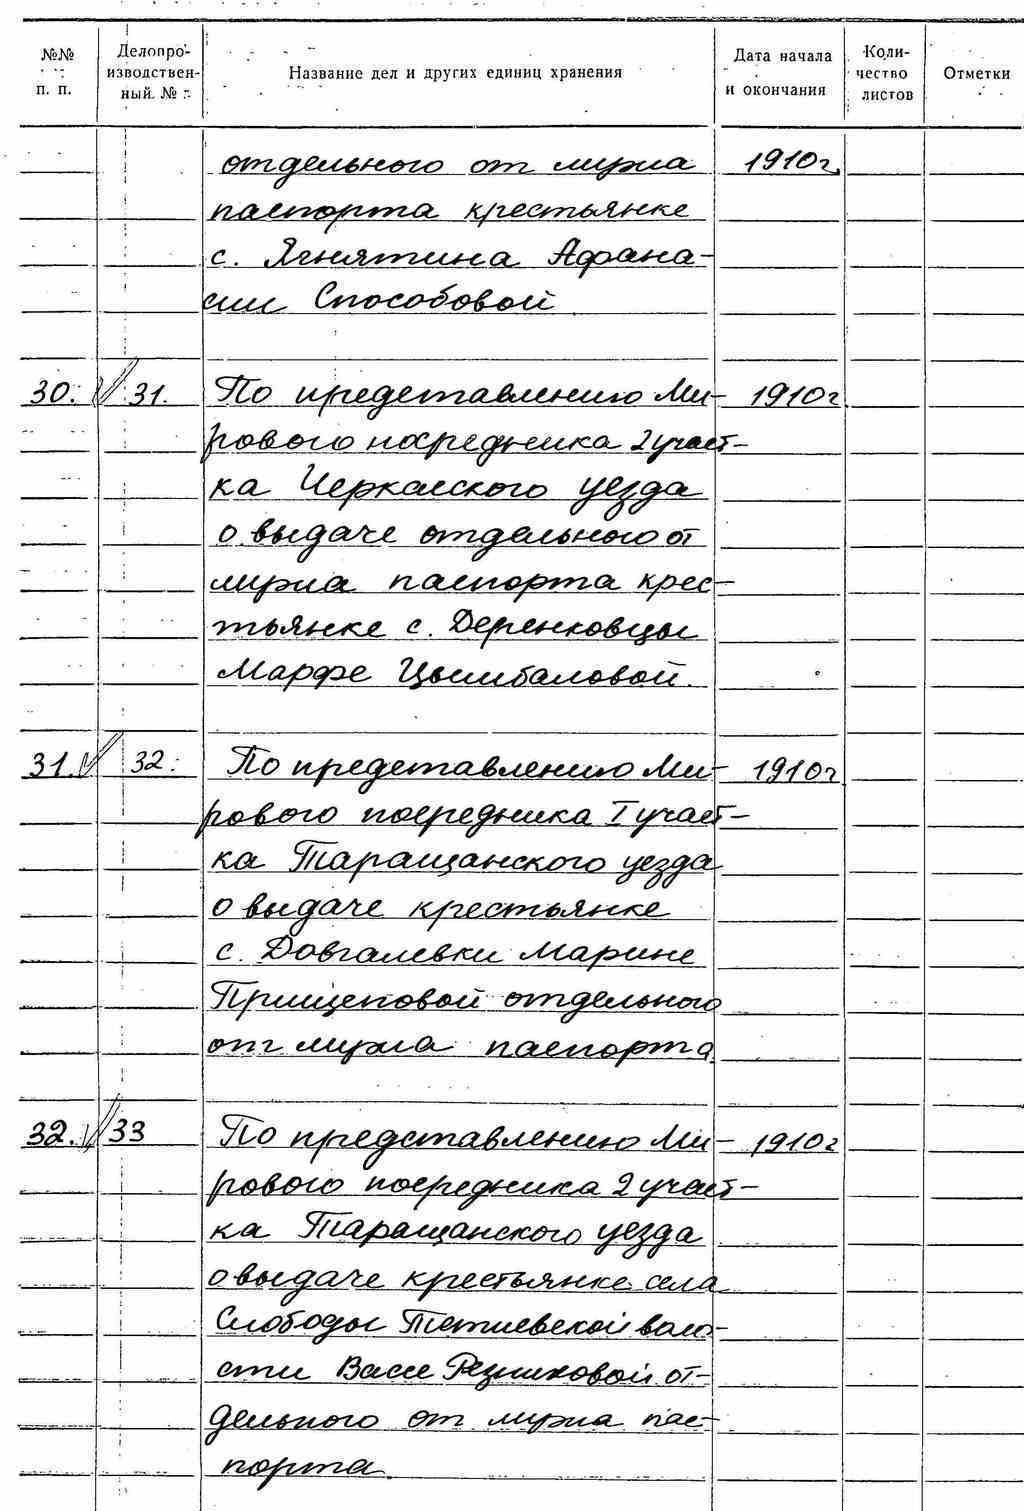 №№ п. п. Делопро- изводствен- ный № Название дел и других единиц хранения Дата начала и окончания Коли- чество листов Отметки
отдельного от мужа 1910г.
паспорта крестьянке
с. Ягнятина Афана-
сии Способовой
30. 31. По представлению Ми- 1910г
рового посредника 2 участ-
ка Черкасского уезда
о выдаче отдельного от
мужа паспорта крес-
тьянке с. Деренковцы
Марфе Цымбаловой.
31. 32. По представлению Ми- 1910г
рового посредника I участ-
ка Таращанского уезда
о выдаче крестьянке
с. Довгалевки Марине
Прищеповой отдельного
от мужа паспорта
32. 33 По представлению Ми- 1910г
рового посредника 2 участ-
ка Таращанского уезда
о выдаче крестьянке села
Слободы Тетиевской воло-
сти Васе Резниковой от-
дельного от мужа пас-
порта